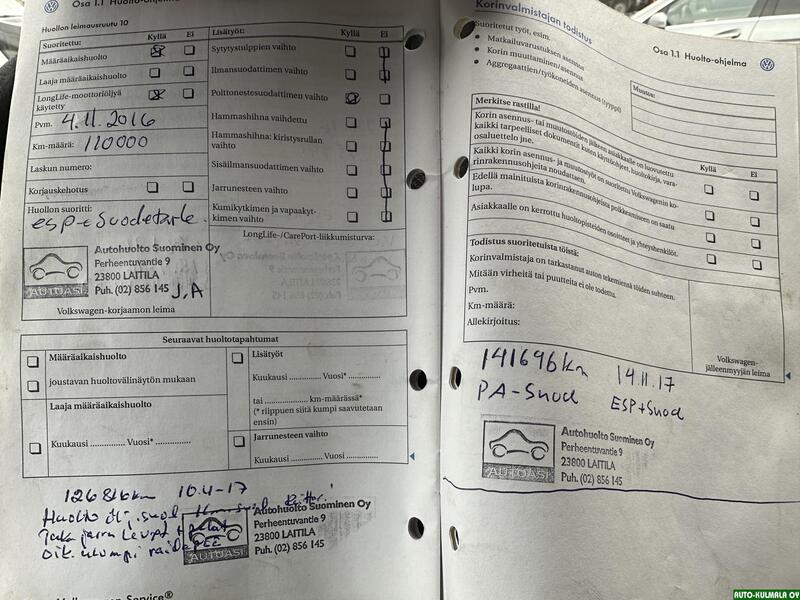 Osa 1.1 Huolto-ohjelma
Huollon leimausruutu 10
Suoritettu: Kyllä Ei
Määräaikaishuolto
Laaja määräaikaishuolto
LongLife-moottoriöljyä
käytetty
Pvm. 4.11.2016
Km-määrä: 110000
Laskun numero:
Korjauskehotus
Huollon suoritti:
esp+Suodetark.
Autohuolto Suominen Oy
Perheentuvantie 9
23800 LAITILA
Puh. (02) 856 145
J.A
AUTOASI
Volkswagen-korjaamon leima
Lisätyöt: Kyllä Ei
Sytytystulppien vaihto
Ilmansuodattimen vaihto
Polttonestesuodattimen vaihto
Hammashihna vaihdettu
Hammashihna: kiristysrullan
vaihto
Sisäilmansuodattimen vaihto
Jarrunesteen vaihto
Kumikytkimen ja vapaakyt-
kimen vaihto
LongLife-/CarePort-liikkumisturva:
Seuraavat huoltotapahtumat
Määräaikaishuolto
joustavan huoltovälinäytön mukaan
Laaja määräaikaishuolto
Kuukausi .............. Vuosi* ..............
Lisätyöt
Kuukausi ............. Vuosi* .............
tai ................ km-määrässä*
(* riippuen siitä kumpi saavutetaan
ensin)
Jarrunesteen vaihto
Kuukausi ............. Vuosi .............
126816km 10.4-17
Huolto öli, suod
Taka jarru Levyt + palat
oik. ulompi
Autohuolto Suominen Oy
Perheentuvantie 9
23800 LAITILA
Puh. (02) 856 145
AUTOASI
Volkswagen Service®
Korinvalmistajan todistus
Osa 1.1 Huolto-ohjelma
Suoritetut työt, esim.
• Matkailuvarustuksen asennus
• Korin muuttaminen/asennus
• Aggregaattien/työkoneiden asennus (tyyppi)
Muutos:
Merkitse rastilla!
Kyllä Ei
Korin asennus- tai muutostöiden jälkeen asiakkaalle on luovutettu
kaikki tarpeelliset dokumentit kuten käyttöohjeet, huoltokirja, vara-
osaluettelo jne.
Kaikki korin asennus- ja muutostyöt on suoritettu Volkswagenin ko-
rinrakennusohjeita noudattaen.
Edellä mainituista korinrakennusohjeista poikkeamiseen on saatu
lupa.
Asiakkaalle on kerrottu huoltopisteiden osoitteet ja yhteyshenkilöt.
Todistus suoritetuista töistä:
Korinvalmistaja on tarkastanut auton tekemiensä töiden suhteen.
Mitään virheitä tai puutteita ei ole todettu.
Pvm.
Km-määrä:
Allekirjoitus:
Volkswagen-
jälleenmyyjän leima
141696km 14.11.17
PA-Suod ESP+Suod
Autohuolto Suominen Oy
Perheentuvantie 9
23800 LAITILA
Puh. (02) 856 145
AUTOASI
AUTO-KULMALA OY